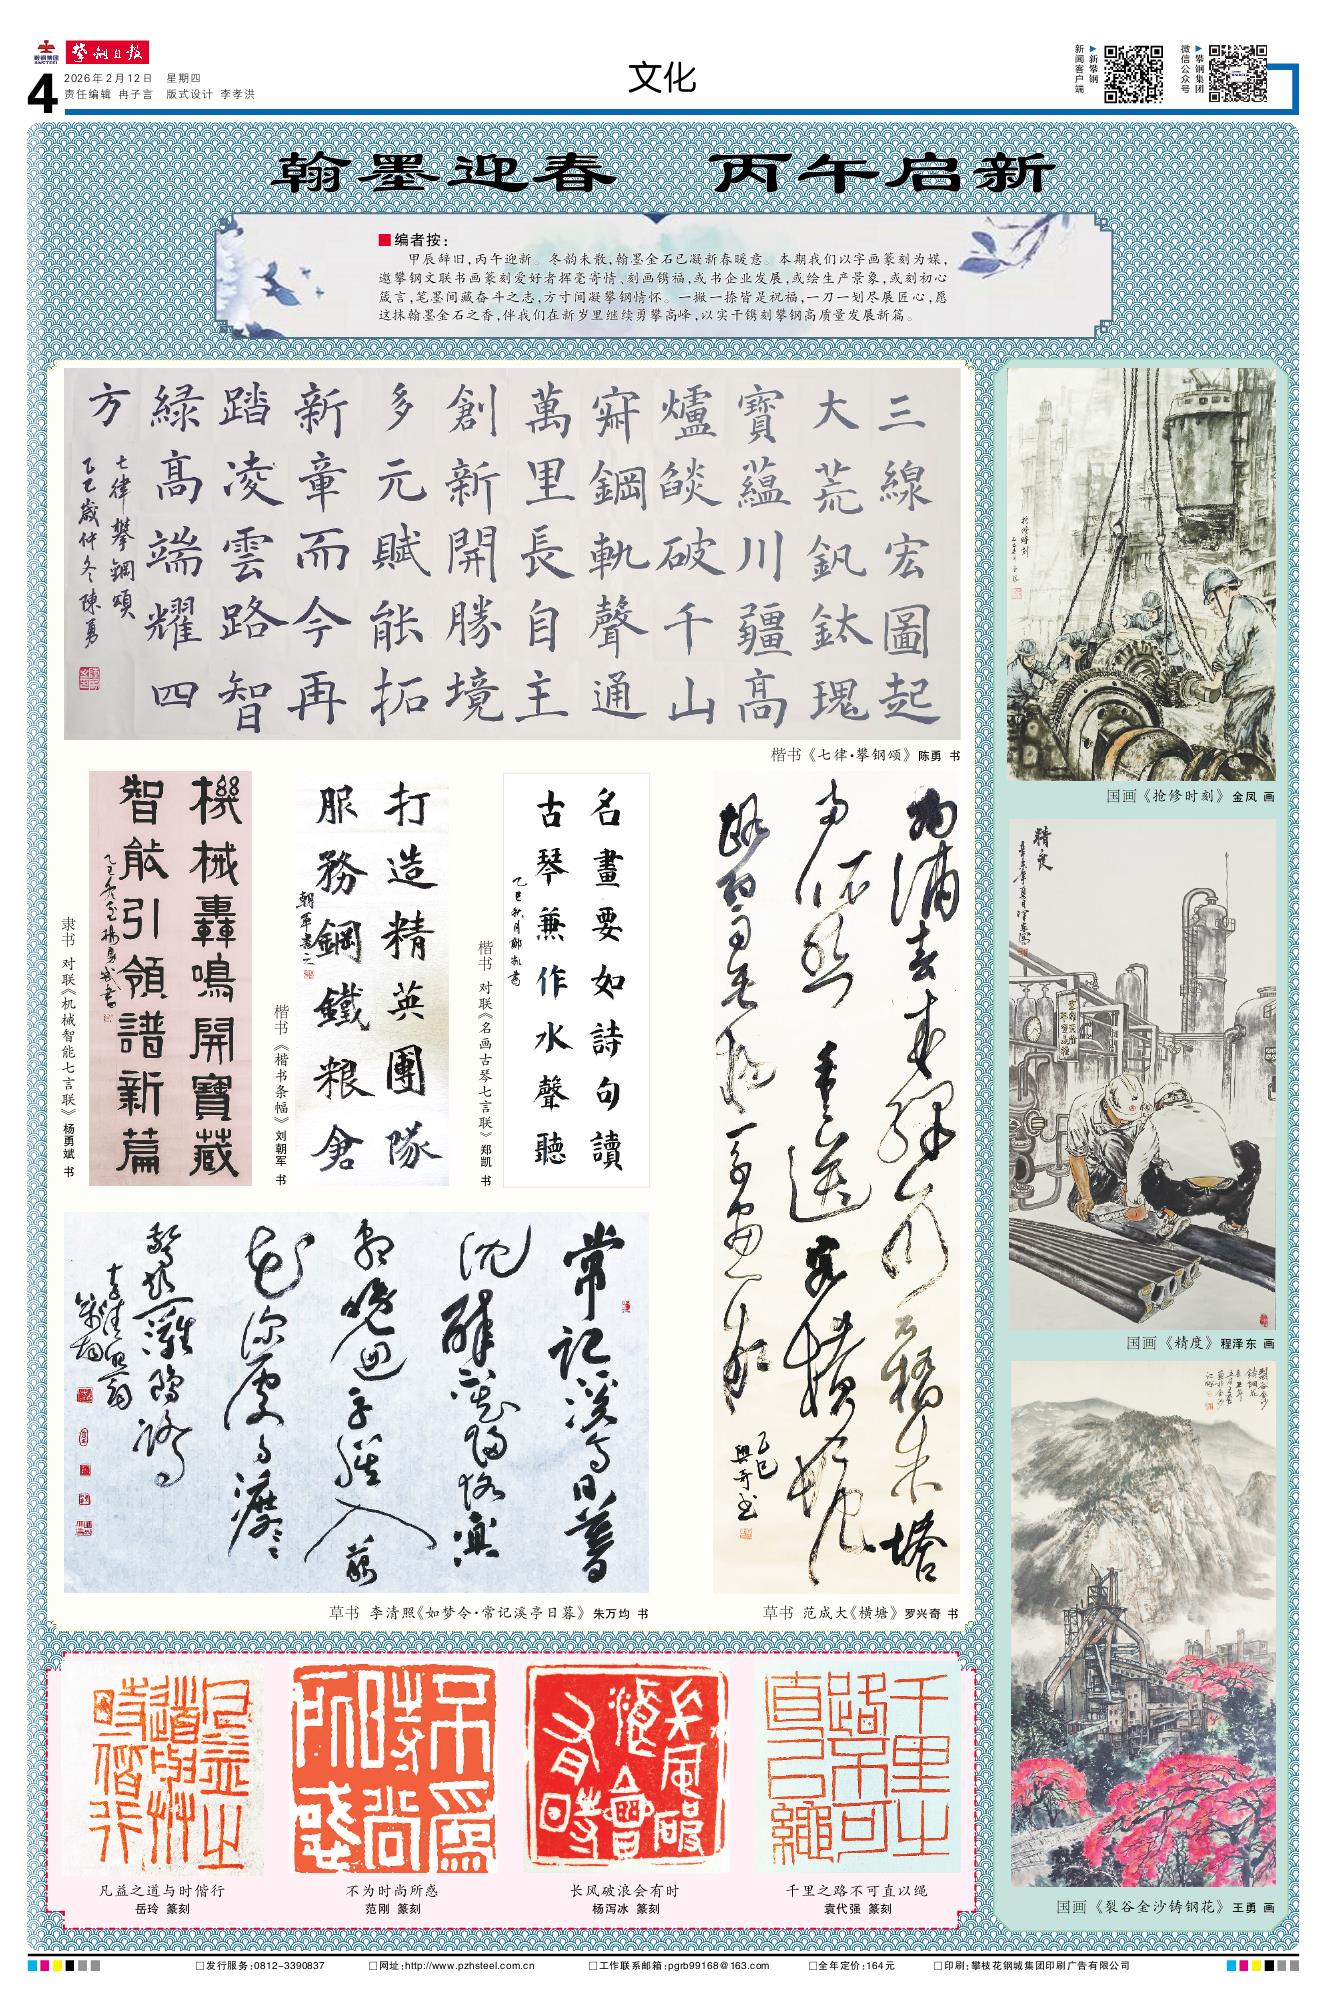 鞍钢集团
ANSTEEL
攀钢日报
4
2026年2月12日 星期四
责任编辑 冉子言 版式设计 李孝洪
文化
新闻客户端
▶新攀钢
微信公众号
▶攀钢集团
翰墨迎春 丙午启新
■编者按：
甲辰辞旧，丙午迎新。冬韵未散，翰墨金石已凝新春暖意。本期我们以字画篆刻为媒，
邀攀钢文联书画篆刻爱好者挥毫寄情、刻画镌福，或书企业发展，或绘生产景象，或刻初心
箴言，笔墨间藏奋斗之志，方寸间凝攀钢情怀。一撇一捺皆是祝福，一刀一划尽展匠心，愿
这抹翰墨金石之香，伴我们在新岁里继续勇攀高峰，以实干镌刻攀钢高质量发展新篇。
三線宏圖起
大荒釩鈦瑰
寶蘊川疆高
爐燄破千山
寂鋼軌聲通
萬里長自主
創新開勝境
多元賦能拓
新章而今再
踏凌雲路智
緑高端耀四
方
七律攀鋼頌
乙巳歲仲冬陳勇
楷书《七律·攀钢颂》陈勇 书
機械轟鳴開寶藏
智能引領譜新篇
隶书 对联《机械智能七言联》杨勇斌 书
打造精英團隊
服務鋼鐵粮倉
朝軍書之
楷书《楷书条幅》刘朝军 书
名畫要如詩句讀
古琴兼作水聲聽
乙巳秋月鄭凱書
楷书 对联《名画古琴七言联》郑凯 书
南浦春来绿一川石橋朱塔
两依然年年送客横塘
路细雨垂杨系画船
乙巳
興奇书
草书 范成大《横塘》罗兴奇 书
常记溪亭日暮
沈醉不知归路兴
尽晚回舟误入藕
花深处争渡争渡
惊起一滩鸥鹭
草书 李清照《如梦令·常记溪亭日暮》朱万均 书
抢修时刻
国画《抢修时刻》金凤 画
精度
国画《精度》程泽东 画
裂谷金沙
铸钢花
国画《裂谷金沙铸钢花》王勇 画
凡益之道与时偕行
岳玲 篆刻
不为时尚所惑
范刚 篆刻
长风破浪会有时
杨泻冰 篆刻
千里之路不可直以绳
袁代强 篆刻
□发行服务：0812-3390837 □网址：http://www.pzhsteel.com.cn □工作联系邮箱：pgrb99168@163.com □全年定价：164元 □印刷：攀枝花钢城集团印刷广告有限公司